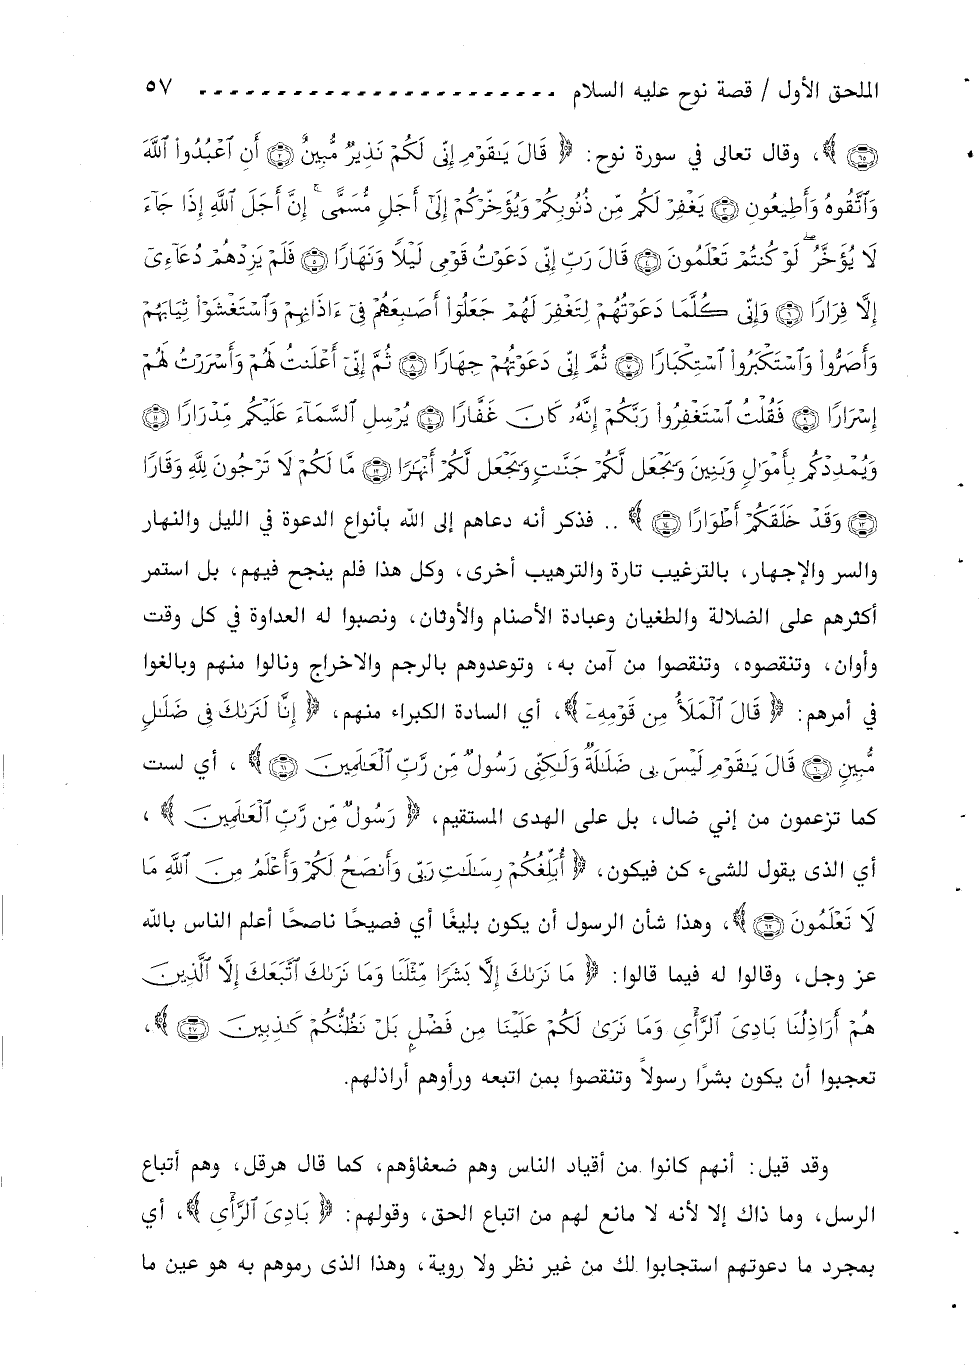 الملحق الأول / قصة نوح عليه السلام ٥٧
﴿٦٥﴾ ، وقال تعالى في سورة نوح: ﴿ قَالَ يَـٰقَوْمِ إِنِّى لَكُمْ نَذِيرٌ مُّبِينٌ ﴿٢﴾ أَنِ ٱعْبُدُوا۟ ٱللَّهَ
وَٱتَّقُوهُ وَأَطِيعُونِ ﴿٣﴾ يَغْفِرْ لَكُم مِّن ذُنُوبِكُمْ وَيُؤَخِّرْكُمْ إِلَىٰٓ أَجَلٍ مُّسَمًّى ۚ إِنَّ أَجَلَ ٱللَّهِ إِذَا جَآءَ
لَا يُؤَخَّرُ ۖ لَوْ كُنتُمْ تَعْلَمُونَ ﴿٤﴾ قَالَ رَبِّ إِنِّى دَعَوْتُ قَوْمِى لَيْلًا وَنَهَارًا ﴿٥﴾ فَلَمْ يَزِدْهُمْ دُعَآءِىٓ
إِلَّا فِرَارًا ﴿٦﴾ وَإِنِّى كُلَّمَا دَعَوْتُهُمْ لِتَغْفِرَ لَهُمْ جَعَلُوٓا۟ أَصَـٰبِعَهُمْ فِىٓ ءَاذَانِهِمْ وَٱسْتَغْشَوْا۟ ثِيَابَهُمْ
وَأَصَرُّوا۟ وَٱسْتَكْبَرُوا۟ ٱسْتِكْبَارًا ﴿٧﴾ ثُمَّ إِنِّى دَعَوْتُهُمْ جِهَارًا ﴿٨﴾ ثُمَّ إِنِّىٓ أَعْلَنتُ لَهُمْ وَأَسْرَرْتُ لَهُمْ
إِسْرَارًا ﴿٩﴾ فَقُلْتُ ٱسْتَغْفِرُوا۟ رَبَّكُمْ إِنَّهُۥ كَانَ غَفَّارًا ﴿١٠﴾ يُرْسِلِ ٱلسَّمَآءَ عَلَيْكُم مِّدْرَارًا ﴿١١﴾
وَيُمْدِدْكُم بِأَمْوَٰلٍ وَبَنِينَ وَيَجْعَل لَّكُمْ جَنَّـٰتٍ وَيَجْعَل لَّكُمْ أَنْهَـٰرًا ﴿١٢﴾ مَّا لَكُمْ لَا تَرْجُونَ لِلَّهِ وَقَارًا
﴿١٣﴾ وَقَدْ خَلَقَكُمْ أَطْوَارًا ﴿١٤﴾ ﴾ .. فذكر أنه دعاهم إلى الله بأنواع الدعوة في الليل والنهار
والسر والإجهار، بالترغيب تارة والترهيب أخرى، وكل هذا فلم ينجح فيهم، بل استمر
أكثرهم على الضلالة والطغيان وعبادة الأصنام والأوثان، ونصبوا له العداوة في كل وقت
وأوان، وتنقصوه، وتنقصوا من آمن به، وتوعدوهم بالرجم والاخراج ونالوا منهم وبالغوا
في أمرهم: ﴿ قَالَ ٱلْمَلَأُ مِن قَوْمِهِۦٓ ﴾، أي السادة الكبراء منهم، ﴿ إِنَّا لَنَرَىٰكَ فِى ضَلَـٰلٍ
مُّبِينٍ ﴿٦٠﴾ قَالَ يَـٰقَوْمِ لَيْسَ بِى ضَلَـٰلَةٌ وَلَـٰكِنِّى رَسُولٌ مِّن رَّبِّ ٱلْعَـٰلَمِينَ ﴿٦١﴾ ﴾ ، أي لست
كما تزعمون من إني ضال، بل على الهدى المستقيم، ﴿ رَسُولٌ مِّن رَّبِّ ٱلْعَـٰلَمِينَ ﴾ ،
أي الذى يقول للشيء كن فيكون، ﴿ أُبَلِّغُكُمْ رِسَـٰلَـٰتِ رَبِّى وَأَنصَحُ لَكُمْ وَأَعْلَمُ مِنَ ٱللَّهِ مَا
لَا تَعْلَمُونَ ﴿٦٢﴾ ﴾، وهذا شأن الرسول أن يكون بليغًا أي فصيحًا ناصحًا أعلم الناس بالله
عز وجل، وقالوا له فيما قالوا: ﴿ مَا نَرَىٰكَ إِلَّا بَشَرًا مِّثْلَنَا وَمَا نَرَىٰكَ ٱتَّبَعَكَ إِلَّا ٱلَّذِينَ
هُمْ أَرَاذِلُنَا بَادِىَ ٱلرَّأْىِ وَمَا نَرَىٰ لَكُمْ عَلَيْنَا مِن فَضْلٍۭ بَلْ نَظُنُّكُمْ كَـٰذِبِينَ ﴿٢٧﴾ ﴾،
تعجبوا أن يكون بشرًا رسولاً وتنقصوا بمن اتبعه ورأوهم أراذلهم.
وقد قيل: أنهم كانوا من أقياد الناس وهم ضعفاؤهم، كما قال هرقل، وهم أتباع
الرسل، وما ذاك إلا لأنه لا مانع لهم من اتباع الحق، وقولهم: ﴿ بَادِىَ ٱلرَّأْىِ ﴾، أي
بمجرد ما دعوتهم استجابوا لك من غير نظر ولا روية، وهذا الذى رموهم به هو عين ما